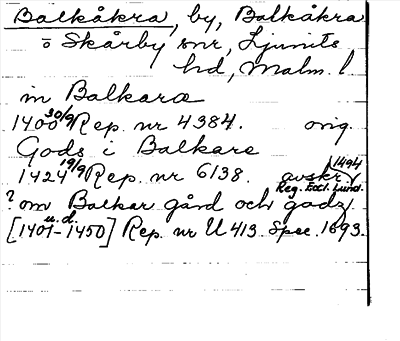 Balkåkra, by, Balkåkra
o Skårby snr, Ljunits
hd, Malm. l
in Balkara
1400 30/9 Rep. nr 4384. orig.
Gods i Balkare
1424 19/9 Rep. nr 6138. avskr. 1494
Reg. Eccl. Lund.
? om Balkar gård och godz
[1401-1450] u.d. Rep. nr U 413. Spec. 1693.